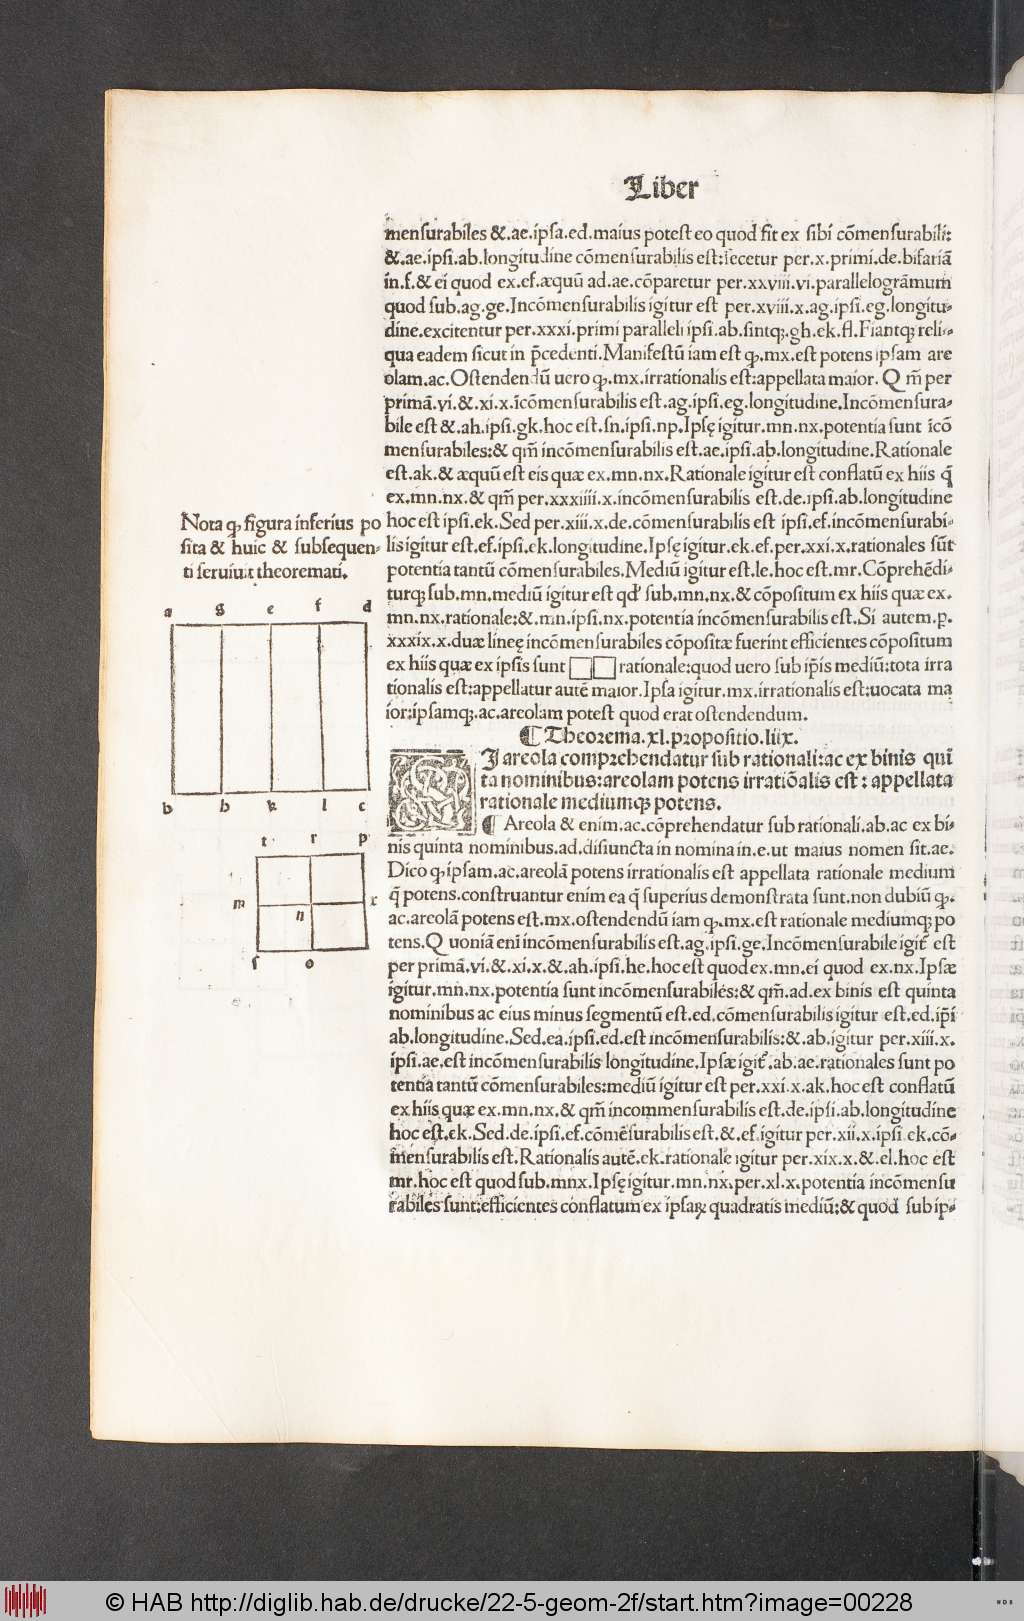 Liber
mensurabiles &.ae.ipsa.ed.maius potest eo quod fit ex sibi cōmensurabili:
&.ae.ipsi.ab.longitudine cōmensurabilis est:secetur per.x.primi.de.bifariā
in.f.& ei quod ex.ef.æquū ad.ae.cōparetur per.xxviii.vi.parallelogrāmum
quod sub.ag.ge.Incōmensurabilis igitur est per.xviii.x.ag.ipsi.eg.longitu-
dine.excitentur per.xxxi.primi paralleli ipsi.ab.sintqꝫ.gh.ek.fl.Fiantqꝫ reli-
qua eadem sicut in p̄cedenti.Manifestū iam est qꝫ.mx.est potens ipsam are
olam.ac.Ostendendū uero qꝫ.mx.irrationalis est:appellata maior.Q m̄ per
primā.vi.&.xi.x.īcōmensurabilis est.ag.ipsi.eg.longitudine.Incōmensura-
bile est &.ah.ipsi.gk.hoc est.sn.ipsi.np.Ipsę igitur.mn.nx.potentia sunt īcō
mensurabiles:& qm̄ incōmensurabilis est.ae.ipsi.ab.longitudine.Rationale
est.ak.& æquū est eis quæ ex.mn.nx.Rationale igitur est conflatū ex hiis q̄
ex.mn.nx.& qm̄ per.xxxiiii.x.incōmensurabilis est.de.ipsi.ab.longitudine
hoc est ipsi.ek.Sed per.xiii.x.de.cōmensurabilis est ipsi.ef.incōmensurabi-
lis igitur est.ef.ipsi.ek.longitudine.Ipsę igitur.ek.ef.per.xxi.x.rationales sūt
potentia tantū cōmensurabiles.Mediū igitur est.le.hoc est.mr.Cōprehēdi-
turqꝫ sub.mn.mediū igitur est qd' sub.mn.nx.& cōpositum ex hiis quæ ex.
mn.nx.rationale:&.mn.ipsi.nx.potentia incōmensurabilis est.Si autem.p.
xxxix.x.duæ lineę incōmensurabiles cōpositæ fuerint efficientes cōpositum
ex hiis quæ ex ipsis sunt □□ rationale:quod uero sub ip̄is mediū:tota irra
tionalis est:appellatur autē maior.Ipsa igitur.mx.irrationalis est:uocata ma
ior:ipsamqꝫ.ac.areolam potest quod erat ostendendum.
¶ Theorema.xl.propositio.liix.
SI areola comprehendatur sub rationali:ac ex binis quin
ta nominibus:areolam potens irratiōalis est : appellata
rationale mediumqꝫ potens.
¶ Areola & enim.ac.cōprehendatur sub rationali.ab.ac ex bi-
nis quinta nominibus.ad.disiuncta in nomina in.e.ut maius nomen sit.ae.
Dico qꝫ ipsam.ac.areolā potens irrationalis est appellata rationale medium
q̄ potens.construantur enim ea q̄ superius demonstrata sunt.non dubiū qꝫ.
ac.areolā potens est.mx.ostendendū iam qꝫ.mx.est rationale mediumqꝫ po
tens.Q uoniā eni incōmensurabilis est.ag.ipsi.ge.Incōmensurabile igit̄ est
per primā.vi.& xi.x.&.ah.ipsi.he.hoc est quod ex.mn.ei quod ex.nx.Ipsæ
igitur.mn.nx.potentia sunt incōmensurabiles:& qm̄.ad.ex binis est quinta
nominibus ac eius minus segmentū est.ed.cōmensurabilis igitur est.ed.ip̄i
ab.longitudine.Sed.ea.ipsi.ed.est incōmensurabilis:&.ab.igitur per.xiii.x.
ipsi.ae.est incōmensurabilis longitudine.Ipsæ igit̄.ab.ae.rationales sunt po
tentia tantū cōmensurabiles:mediū igitur est per.xxi.x.ak.hoc est conflatū
ex hiis quæ ex.mn.nx.& qm̄ incommensurabilis est.de.ipsi.ab.longitudine
hoc est.ek.Sed.de.ipsi.ef.cōmēsurabilis est.&.ef.igitur per.xii.x.ipsi ek.cō-
mensurabilis est.Rationalis autē.ek.rationale igitur per.xix.x.&.el.hoc est
mr.hoc est quod sub.mnx.Ipsę igitur.mn.nx.per.xl.x.potentia incōmensu
rabiles sunt:efficientes conflatum ex ipsaꝝ quadratis mediū:& quod sub ip-
Nota qꝫ figura inferius po
sita & huic & subsequen-
ti seruiuit theoremati.
a g e f d
b h k l c
t r p
m n x
s o
© HAB http://diglib.hab.de/drucke/22-5-geom-2f/start.htm?image=00228